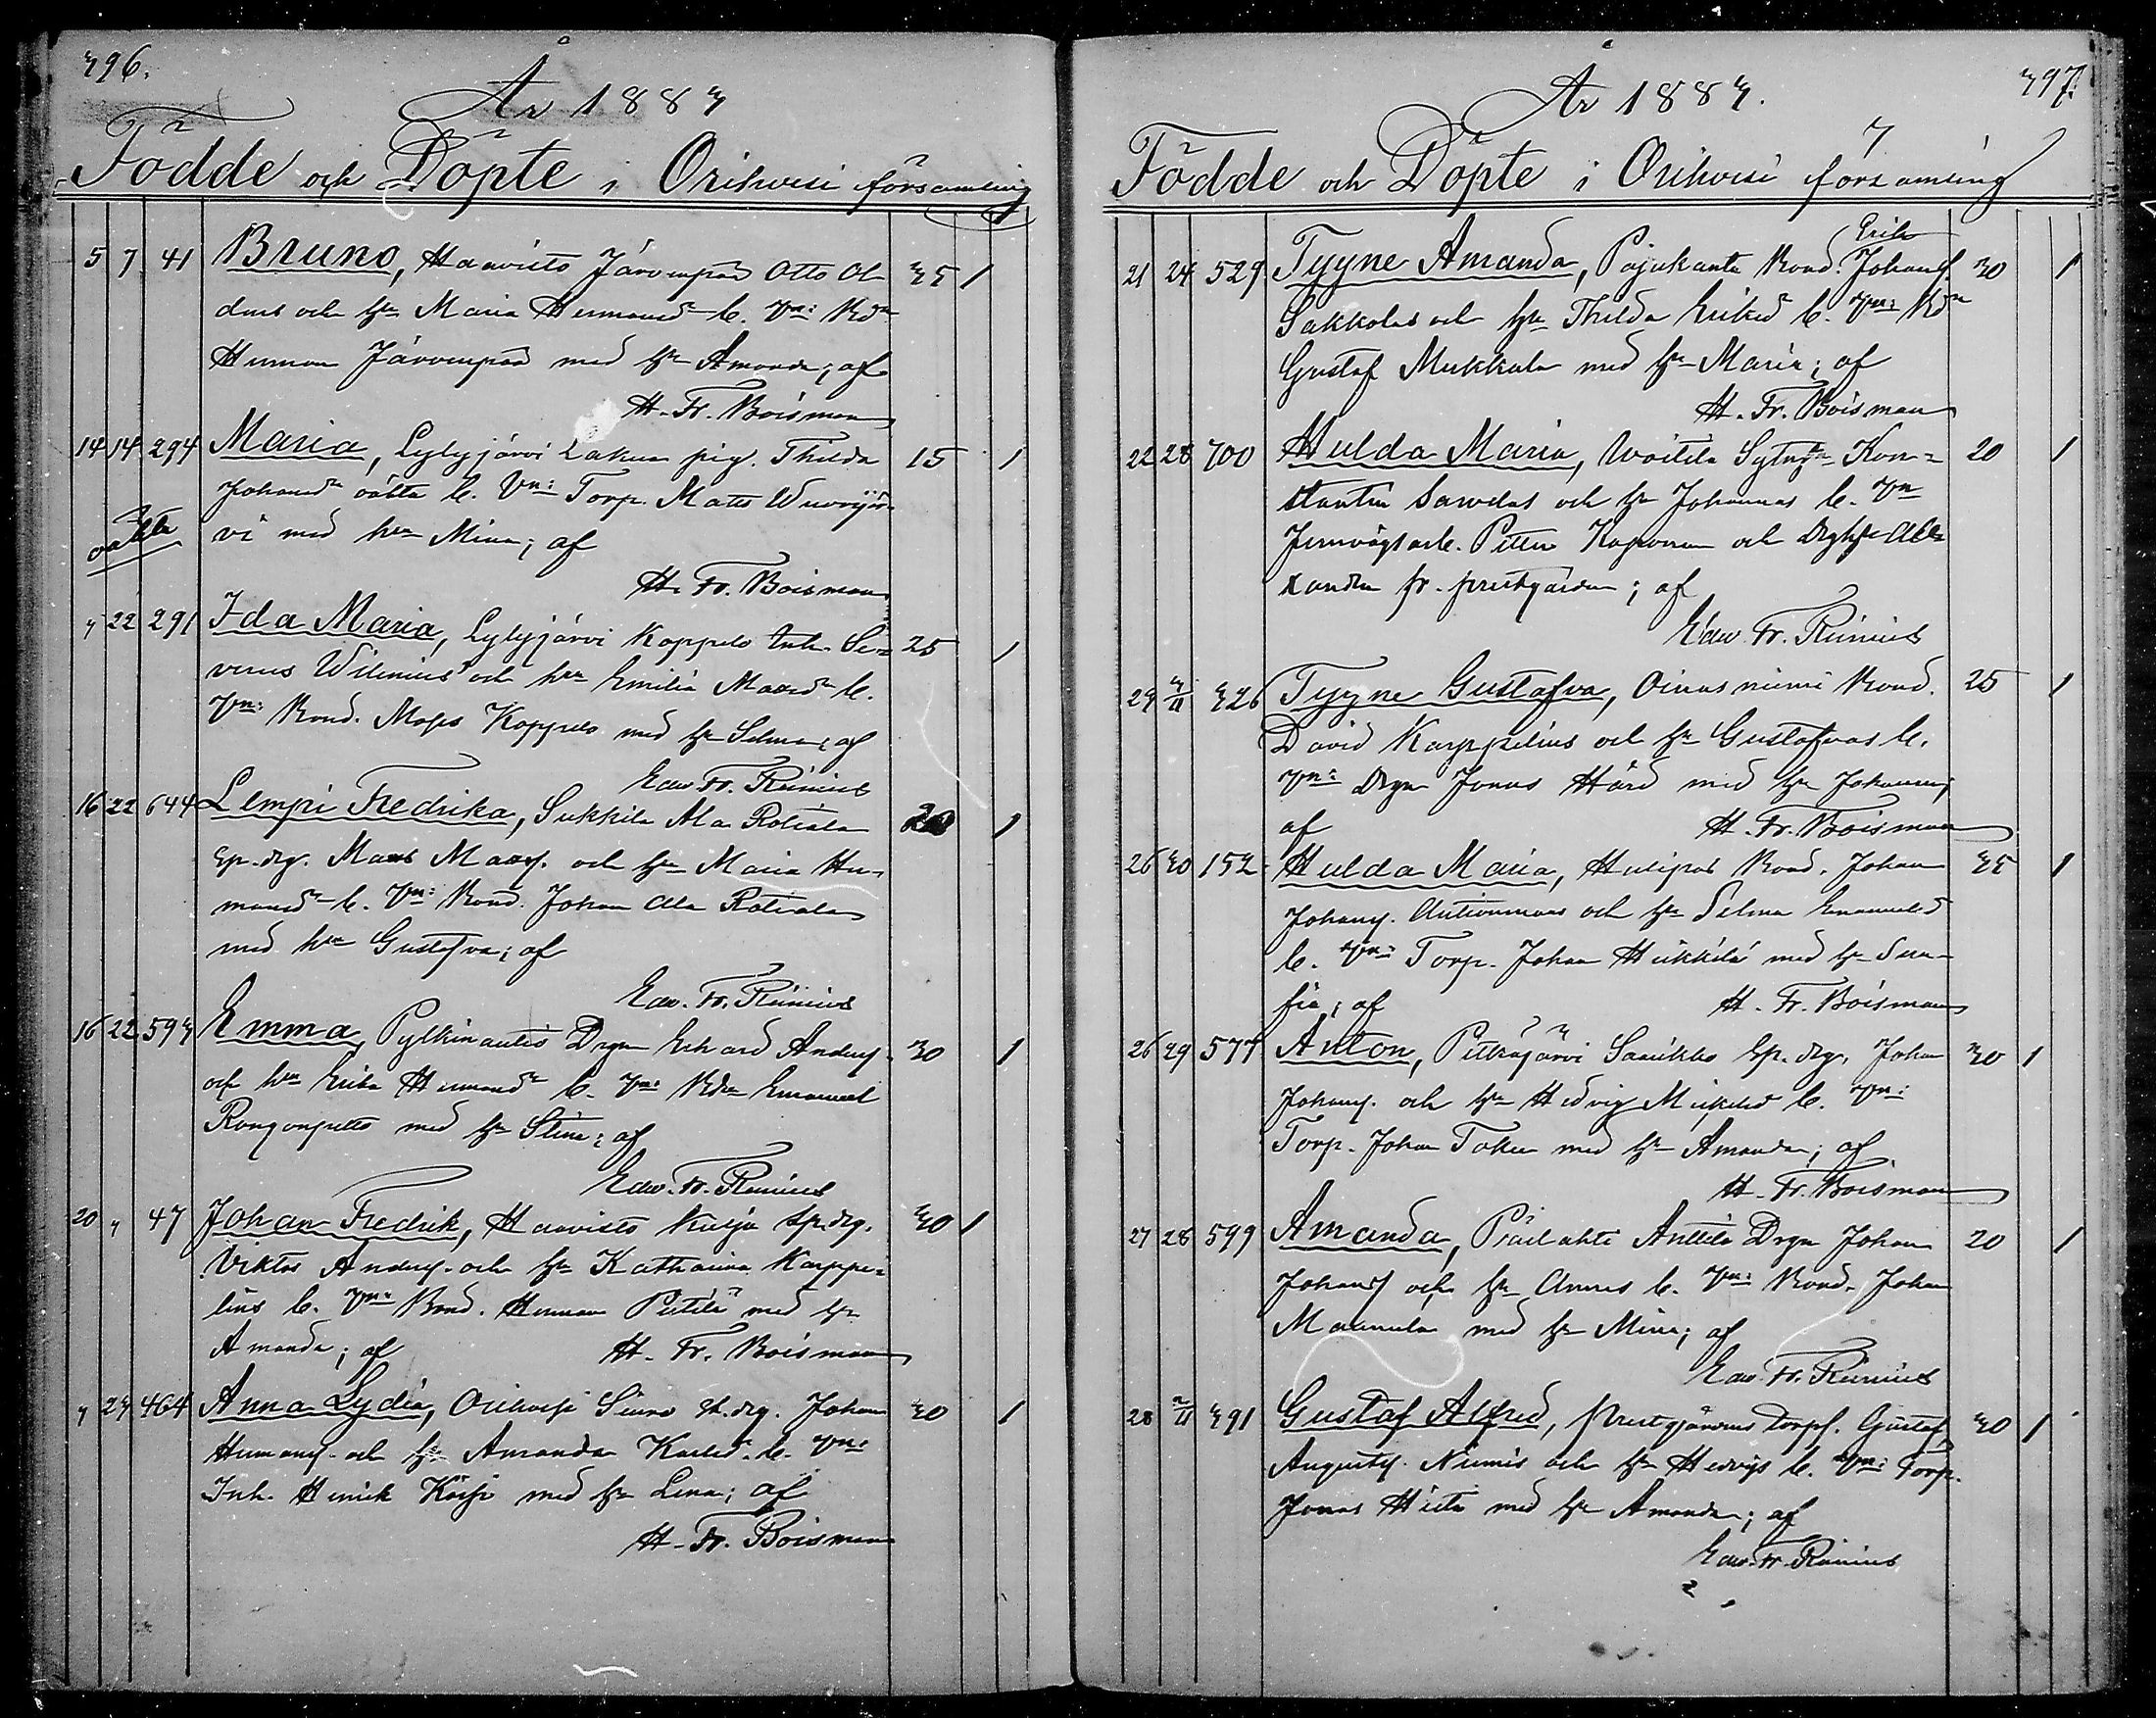 396.
År 1883
Födde och Döpte i Orihvesi församling
5 7 41 Bruno, Haavisto Järvenpää Otto Ol- 35 1
dus och h:u Maria Hermansd:r b. Vn: Bd:n
Herman Järvenpää med h:u Amanda; af
H. Fr. Boisman
14 14 294 Maria, Lylyjärvi Lakua pig. Thilda 15 1
Johansd:r oäkta b. Vn: Torp. Matts Wuorijär-
oäkta vi med h:u Mina; af
H. Fr. Boisman
" 22 291 Ida Maria, Lylyjärvi Koppelo Inh. Se- 25 1
verus Wilenius och h:u Emilia Mattsd:r b.
Vn: Bond. Moses Koppelo med h:u Selma; af
Edv. Fr. Runius
16 22 644 Lempi Fredrika, Sukkila Ala Rotiala 20 1
Sp. drg. Matts Mattss. och h:u Maria Her-
mansd:r b. Vn: Bond. Johan Ala Rotiala
med h:u Gustafva; af
Edv. Fr. Runius
16 22 593 Emma, Pylkinautio Drgn Erhard Anderss. 30 1
och h:u Erika Hermansd:r b. Vn: Bd:n Emanuel
med h:u Stina; af
Edv. Fr. Runius
20 " 47 Johan Fredrik, Haavisto Kurju Sp. drg. 30 1
Viktor Anderss. och h:u Katharina Karppe-
lius b. Vn: Bond. Herman Pietilä med h:u
Amanda; af H. Fr. Boisman
" 23 464 Anna Lydia, Orihvesi Siuro St. drg. Johan 30 1
Hermanss. och h:u Amanda Karlsd:r b. Vn:
Inh. Henrik med h:u Lena; af
H. Fr. Boisman
397.
År 1883.
Födde och Döpte i Orihvesi församling
Erik
21 24 529 Tyyne Amanda, Pajukanta Bond. Johanss. 30 1
Sakkolas och h:u Thilda Eriksd b. Vn: Bd:n
Gustaf Mukkala med h:u Maria; af
H. Fr. Boisman
22 28 700 Hulda Maria, Woitila Sytngn Kon- 20 1
stantin Savelas och h:u Johannas b. Vn
Jernvägsarb. Petter Kaponen och Drghu Alek-
xandra fr. prestgården; af
Edv. Fr. Runius
23 3/11 326 Tyyne Gustafva, Oinasniemi Bond. 25 1
David Karppelius och h:u Gustafvas b.
Vn: Drgn Jonas Hård med h:u Johanna;
af H. Fr. Boisman
26 30 153 Hulda Maria, Hirsipää Bond. Johan 35 1
Johanss. och h:u Selma Emanuelsd
b. Vn: Torp. Johan Heikkilä med h:u Sera-
fia; af H. Fr. Boisman
26 29 577 Anton, Pitkäjärvi Saarikko Sp. drg. Johan 30 1
Johanss. och h:u Hedvig Mickelsd b. Vn:
Torp. Johan Tokee med h:u Amanda; af
H. Fr. Boisman
27 28 599 Amanda, Präilahti Anttila Drgn Johan 20 1
Johanss och h:u Annas b. Vn: Bond. Johan
Maunula med h:u Mina; af
Edv. Fr. Runius
28 2/11 391 Gustaf Alfred, Prestgårdens Torps. Gustaf 30 1
Augustss. Niemis och h:u Hedvigs b. Vn: Torp.
Jonas Hieta med h:u Amanda; af
Edv. Fr. Runius